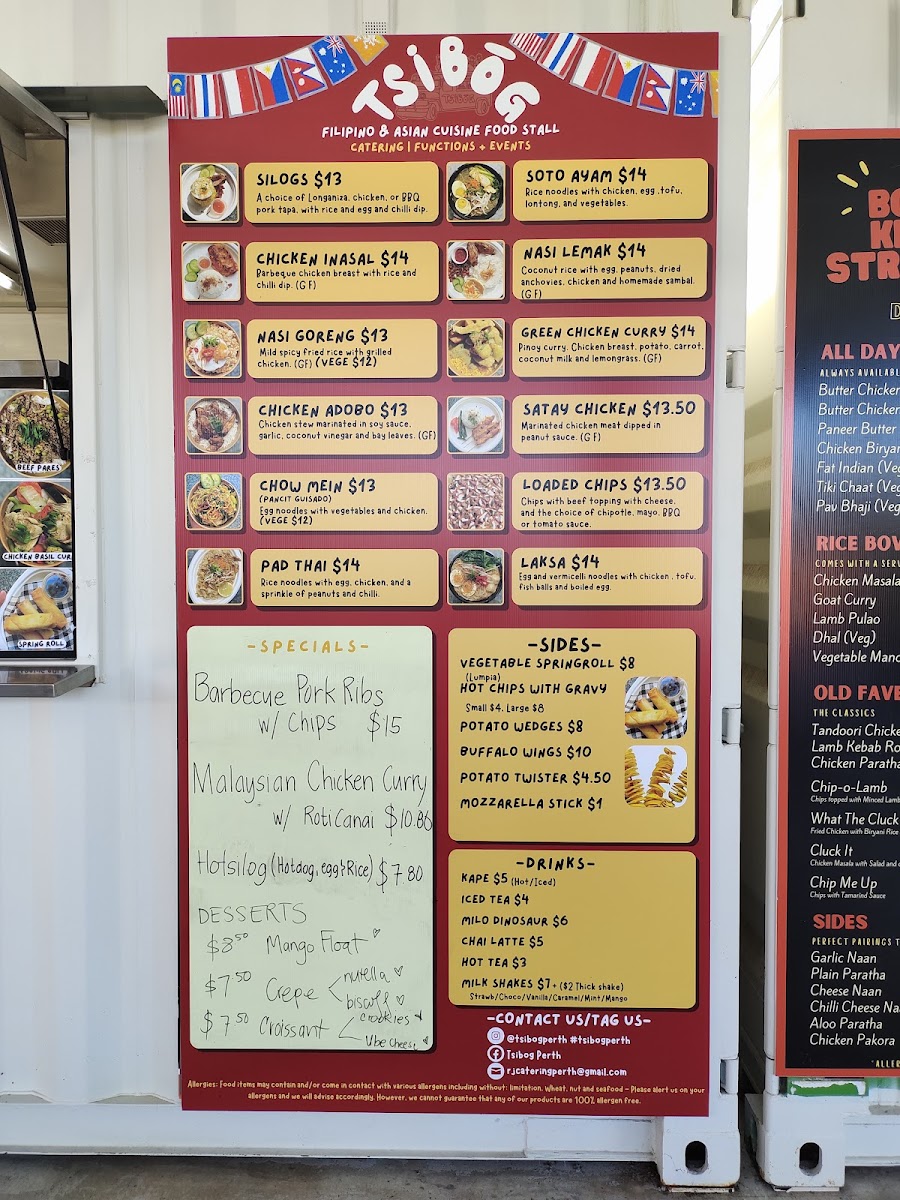 TSiBÒG
FILIPINO & ASIAN CUISINE FOOD STALL
CATERING | FUNCTIONS + EVENTS
SILOGS $13
A choice of Longaniza, chicken, or BBQ
pork tapa, with rice and egg and chilli dip.
CHICKEN INASAL $14
Barbeque chicken breast with rice and
chilli dip. (G F)
NASI GORENG $13
Mild spicy fried rice with grilled
chicken. (GF) (VEGE $12)
CHICKEN ADOBO $13
Chicken stew marinated in soy sauce,
garlic, coconut vinegar and bay leaves. (GF)
CHOW MEIN $13
(PANCIT GUISADO)
Egg noodles with vegetables and chicken.
(VEGE $12)
PAD THAI $14
Rice noodles with egg, chicken, and a
sprinkle of peanuts and chilli.
SOTO AYAM $14
Rice noodles with chicken, egg ,tofu,
lontong, and vegetables.
NASI LEMAK $14
Coconut rice with egg, peanuts, dried
anchovies, chicken and homemade sambal.
(G F)
GREEN CHICKEN CURRY $14
Pinoy curry. Chicken breast, potato, carrot,
coconut milk and lemongrass. (GF)
SATAY CHICKEN $13.50
Marinated chicken meat dipped in
peanut sauce. (G F)
LOADED CHIPS $13.50
Chips with beef topping with cheese,
and the choice of chipotle, mayo, BBQ
or tomato sauce.
LAKSA $14
Egg and vermicelli noodles with chicken , tofu,
fish balls and boiled egg.
-SPECIALS-
Barbecue Pork Ribs
w/ Chips $15
Malaysian Chicken Curry
w/ Roti Canai $10.80
Hotsilog (Hotdog, egg & Rice) $7.80
DESSERTS
$8.50 Mango Float
$7.50 Crepe
nutella
biscoff
$7.50 Croissant
crookies
Ube cheese
-SIDES-
VEGETABLE SPRINGROLL $8
(Lumpia)
HOT CHIPS WITH GRAVY
Small $4, Large $8
POTATO WEDGES $8
BUFFALO WINGS $10
POTATO TWISTER $4.50
MOZZARELLA STICK $1
-DRINKS-
KAPE $5 (Hot/Iced)
ICED TEA $4
MILO DINOSAUR $6
CHAI LATTE $5
HOT TEA $3
MILK SHAKES $7+ ($2 Thick shake)
Strawb/Choco/Vanilla/Caramel/Mint/Mango
-CONTACT US/TAG US-
@tsibogperth #tsibogperth
Tsibog Perth
rjcateringperth@gmail.com
Allergies: Food items may contain and/or come in contact with various allergens including without: limitation, wheat, nut and seafood - Please alert us on your
allergens and we will advise accordingly. However, we cannot guarantee that any of our products are 100% allergen free.
BEEF PARES
CHICKEN BASIL CUR
SPRING ROLL
BO
STR
ALL DAY
ALWAYS AVAILABL
Butter Chicken
Butter Chicken
Paneer Butter
Chicken Biryan
Fat Indian (Veg
Tiki Chaat (Veg
Pav Bhaji (Veg
RICE BOW
COMES WITH A SERV
Chicken Masala
Goat Curry
Lamb Pulao
Dhal (Veg)
Vegetable Manc
OLD FAVE
THE CLASSICS
Tandoori Chicke
Lamb Kebab Ro
Chicken Paratha
Chip-o-Lamb
Chips topped with Minced Lamb
What The Cluck
Fried Chicken with Biryani Rice
Cluck It
Chicken Masala with Salad and
Chip Me Up
Chips with Tamarind Sauce
SIDES
PERFECT PAIRINGS T
Garlic Naan
Plain Paratha
Cheese Naan
Chilli Cheese Naa
Aloo Paratha
Chicken Pakora
*ALLER